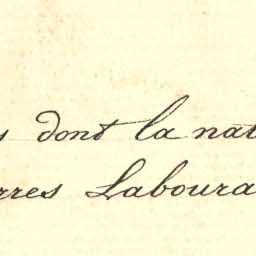 s dont la nat
rres Laboura